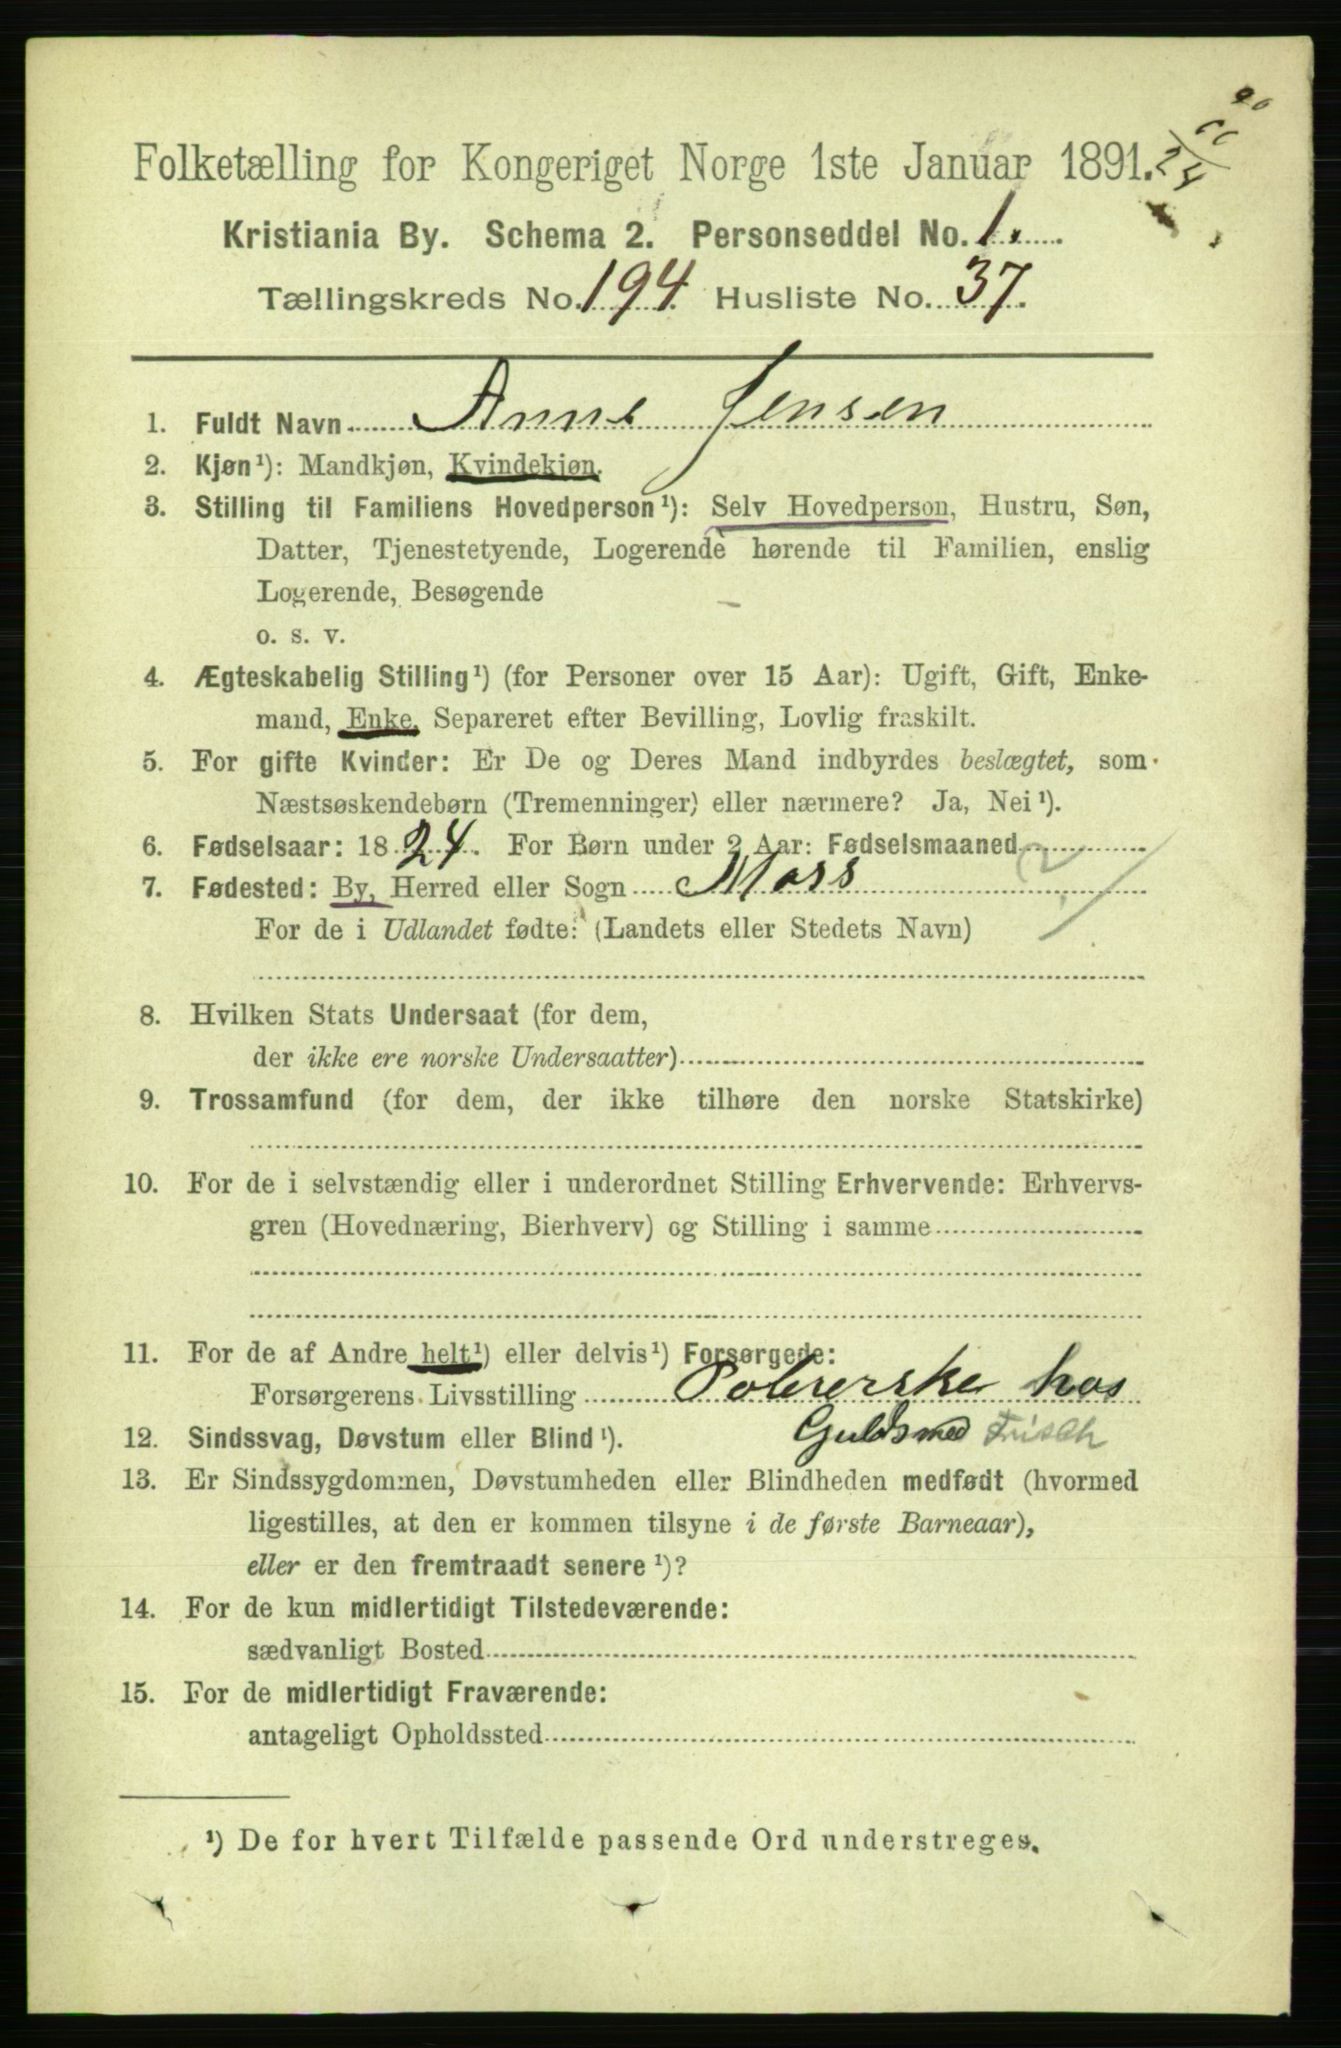 Folketælling for Kongeriget Norge 1ste Januar 1891.
Kristiania By. Schema 2. Personseddel No. 1.
Tællingskreds No. 194 Husliste No. 37.
1. Fuldt Navn Anne Jensen
2. Kjøn¹): Mandkjøn, Kvindekjøn.
3. Stilling til Familiens Hovedperson¹): Selv Hovedperson, Hustru, Søn,
Datter, Tjenestetyende, Logerende hørende til Familien, enslig
Logerende, Besøgende
o. s. v.
4. Ægteskabelig Stilling¹) (for Personer over 15 Aar): Ugift, Gift, Enke-
mand, Enke, Separeret efter Bevilling, Lovlig fraskilt.
5. For gifte Kvinder: Er De og Deres Mand indbyrdes beslægtet, som
Næstsøskendebørn (Tremenninger) eller nærmere? Ja, Nei¹).
6. Fødselsaar: 1824. For Børn under 2 Aar: Fødselsmaaned
7. Fødested: By, Herred eller Sogn Moss
For de i Udlandet fødte: (Landets eller Stedets Navn)
8. Hvilken Stats Undersaat (for dem,
der ikke ere norske Undersaatter)
9. Trossamfund (for dem, der ikke tilhøre den norske Statskirke)
10. For de i selvstændig eller i underordnet Stilling Erhvervende: Erhvervs-
gren (Hovednæring, Bierhverv) og Stilling i samme
11. For de af Andre helt¹) eller delvis¹) Forsørgede:
Forsørgerens Livsstilling Polererske hos
Guldsmed Frisch
12. Sindssvag, Døvstum eller Blind¹).
13. Er Sindssygdommen, Døvstumheden eller Blindheden medfødt (hvormed
ligestilles, at den er kommen tilsyne i de første Barneaar),
eller er den fremtraadt senere¹)?
14. For de kun midlertidigt Tilstedeværende:
sædvanligt Bosted
15. For de midlertidigt Fraværende:
antageligt Opholdssted
¹) De for hvert Tilfælde passende Ord understreges.